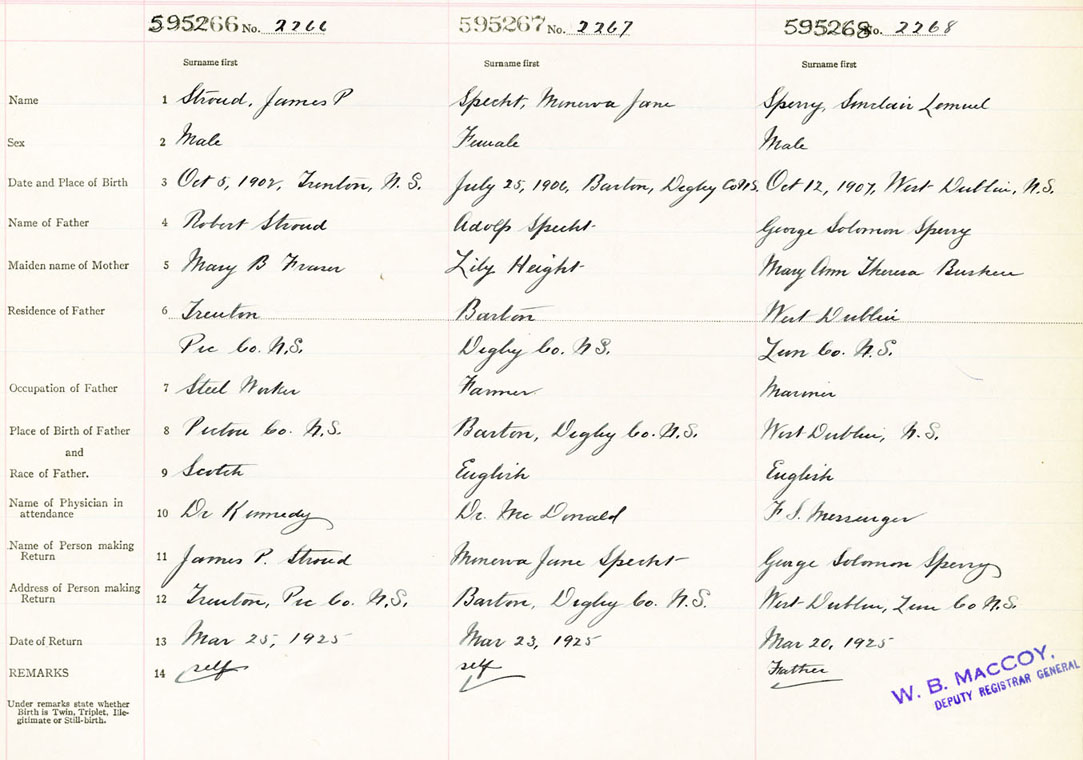 595266 No. 2266 595267 No. 2267 595268 No. 2268
Surname first Surname first Surname first
Name 1 Stroud, James P Specht, Minerva Jane Sperry, Sinclair Lemuel
Sex 2 Male Female Male
Date and Place of Birth 3 Oct 5, 1902, Trenton, N.S. July 25, 1906, Barton, Digby Co N.S. Oct 12, 1907, West Dublin, N.S.
Name of Father 4 Robert Stroud Adolf Specht George Solomon Sperry
Maiden name of Mother 5 Mary B Fraser Lily Height Mary Ann Theresa
Residence of Father 6 Trenton Barton West Dublin
Pic Co. N.S. Digby Co. N.S. Lun Co. N.S.
Occupation of Father 7 Steel Worker Farmer Mariner
Place of Birth of Father 8 Pictou Co. N.S. Barton, Digby Co. N.S. West Dublin, N.S.
and
Race of Father. 9 Scotch English English
Name of Physician in
attendance 10 Dr Kennedy Dr. McDonald F.S. Messenger
Name of Person making
Return 11 James P. Stroud Minerva Jane Specht George Solomon Sperry
Address of Person making
Return 12 Trenton, Pic Co. N.S. Barton, Digby Co. N.S. West Dublin, Lun Co N.S.
Date of Return 13 Mar 25, 1925 Mar 23, 1925 Mar 20, 1925
REMARKS 14 self self Father
W. B. MACCOY,
DEPUTY REGISTRAR GENERAL
Under remarks state whether
Birth is Twin, Triplet, Ille-
gitimate or Still-birth.